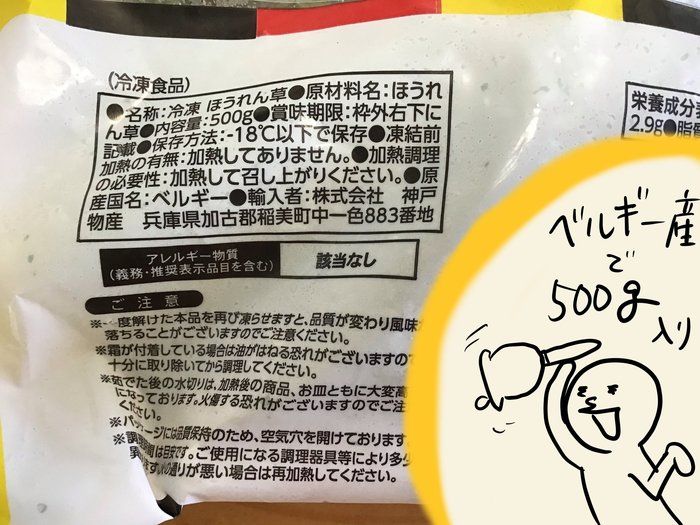 (冷凍食品)
●名称:冷凍 ほうれん草●原材料名:ほうれ
ん草●内容量:500g●賞味期限:枠外右下に
記載●保存方法:-18℃以下で保存●凍結前
加熱の有無:加熱してありません。●加熱調理
の必要性:加熱して召し上がりください。●原
産国名:ベルギー●輸入者:株式会社 神戸
物産 兵庫県加古郡稲美町中一色883番地
アレルギー物質
(義務・推奨表示品目を含む)
該当なし
ご注意
※一度解けた本品を再び凍らせますと、品質が変わり風味が
落ちることがございますのでご注意ください。
※霜が付着している場合は油がはねる恐れがございますので
十分に取り除いてから調理してください。
※茹でた後の水切りは、加熱後の商品、お皿ともに大変高
になっております。火傷する恐れがございますのでご注
ください。
※パッケージには品質保持のため、空気穴を開けております。
※調理時間は目安です。ご使用になる調理器具等により多少
異 ます。火の通りが悪い場合は再加熱してください。
栄養成分
2.9g●脂
ベルギー産
で
500g
入り